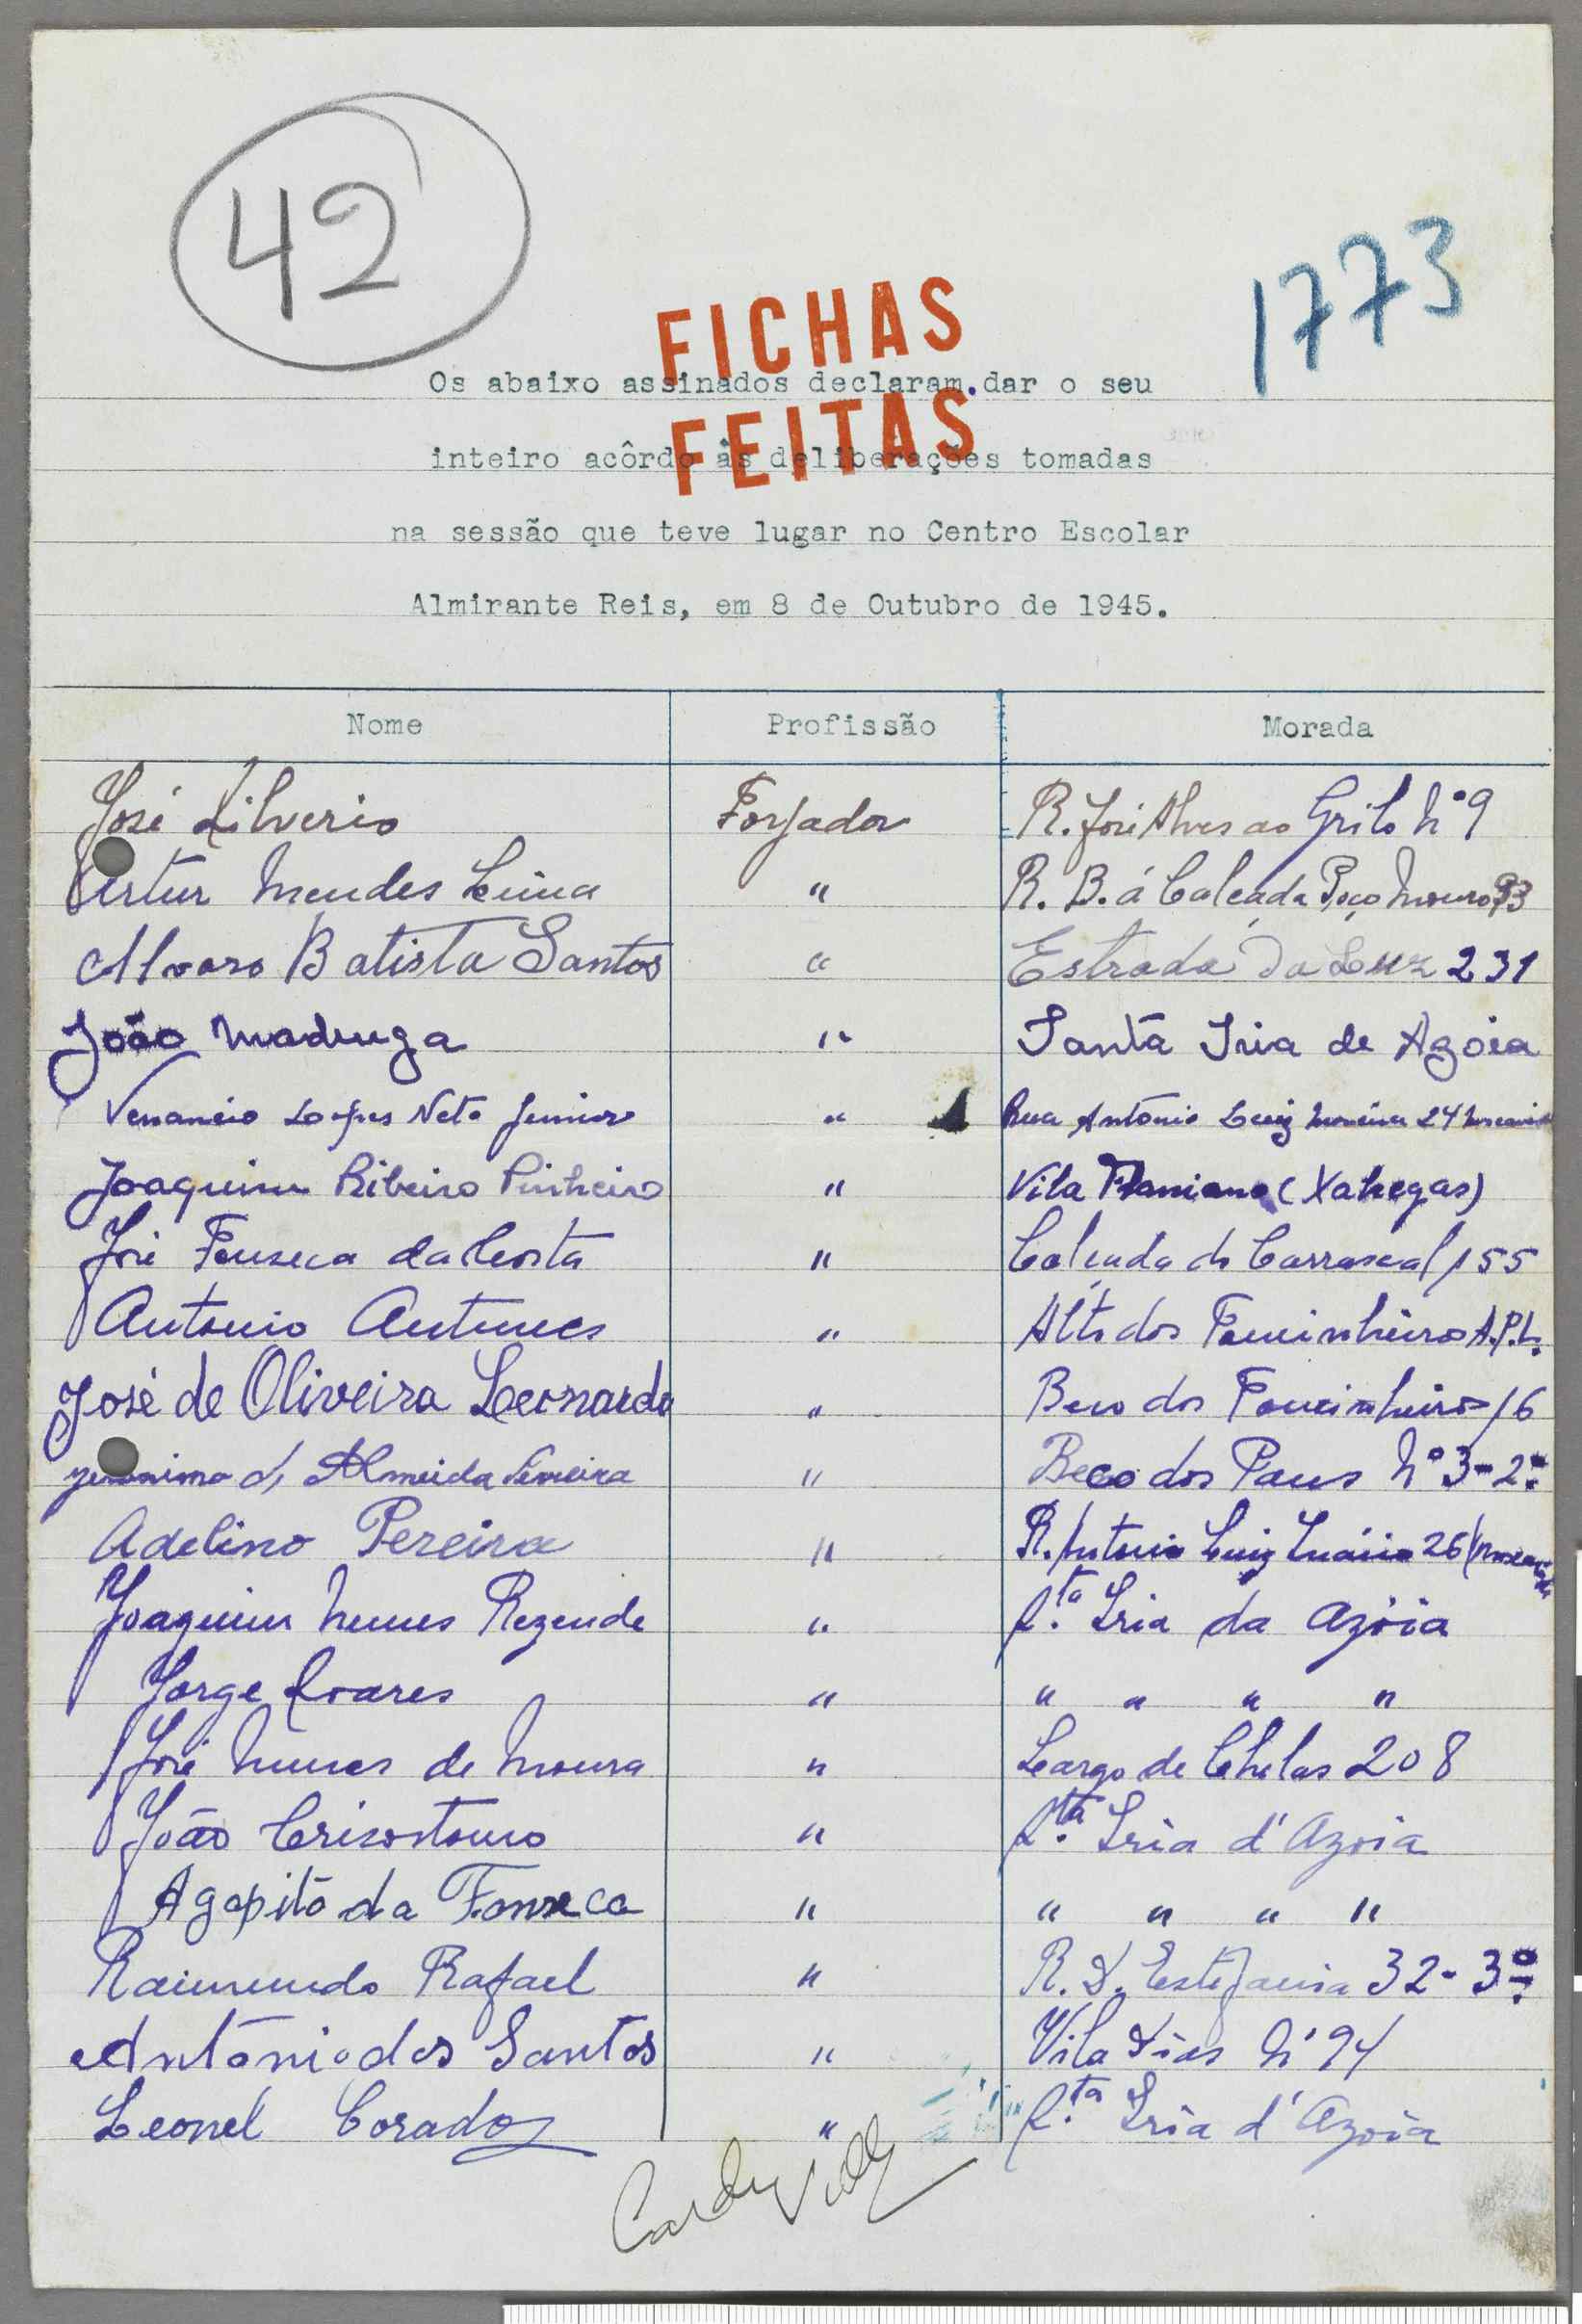 42
1773
FICHAS
FEITAS
Os abaixo assinados declaram dar o seu
inteiro acôrdo às deliberações tomadas
na sessão que teve lugar no Centro Escolar
Almirante Reis, em 8 de Outubro de 1945.
Nome Profissão Morada
José Silverio Forjador R. José Alves ao Grilo Nº 9
Artur Mendes Lima " R. B. á Calçada Poço Mouro 93
Alvaro Batista Santos " Estrada da Luz 231
João Madruga " Santa Iria de Azoia
Venancio Lopes Neto Junior " Rua António Luiz 24
Joaquim Ribeiro Pinheiro " Vila Flamiano (Xabregas)
José Fonseca da Costa " Calçada do Carrascal 155
Antonio Antunes " Alto dos Toucinheiros A.P.L.
José de Oliveira Leonardo " Beco dos Toucinheiros 16
Jeronimo d' Almeida " Beco dos Paus Nº 3-2º
Adelino Pereira " R. Antonio Luiz Inácio 26 (Moscavide
Joaquim Nunes Rezende " S.ta Iria da Azóia
Jorge Soares " " " " "
José Nunes de Moura " Largo de Chelas 208
João Crisostomo " S.ta Iria d'Azoia
Agapito da Fonseca " " " " "
Raimundo Rafael " R. D. Estefania 32-3º
António dos Santos " Vila Dias Nº 94
Leonel Corado " S.ta Iria d'Azoia